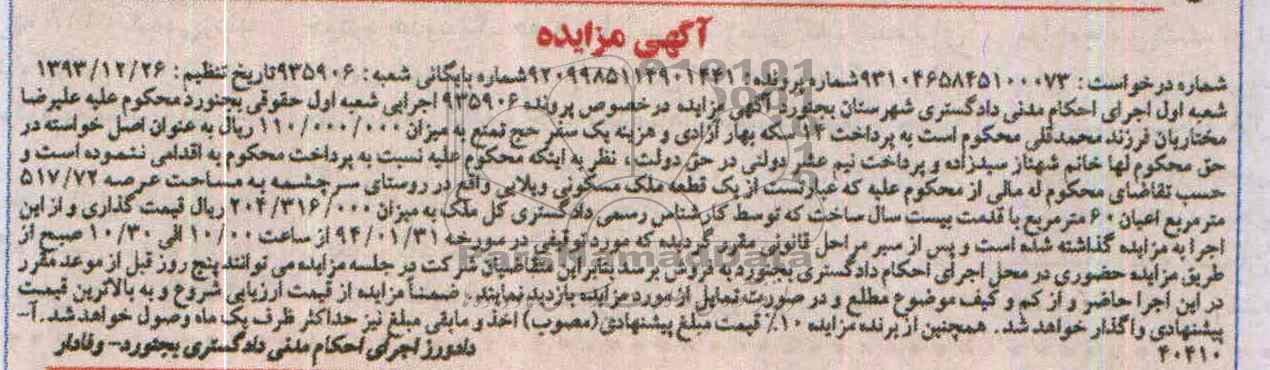 آگهی مزایده
شماره درخواست : ۹۳۱۰۴۶۵۸۴۵۱۰۰۰۷۳ شماره پرونده : ۹۲۰۹۹۸۵۱۱۴۹۰۱۴۴۱ شماره بایگانی شعبه : ۹۳۵۹۰۶ تاریخ تنظیم : ۱۳۹۳/۱۲/۲۶
شعبه اول اجرای احکام مدنی دادگستری شهرستان بجنورد، آگهی مزایده درخصوص پرونده ۹۳۵۹۰۶ اجرایی شعبه اول حقوقی بجنورد محکوم علیه علیرضا
مختاریان فرزند محمدقلی محکوم است به پرداخت ۱۴ سکه بهار آزادی و هزینه یک سفر حج تمتع به میزان ۱۱۰/۰۰۰/۰۰۰ ریال به عنوان اصل خواسته در
حق محکوم لها خانم شهناز سیدزاده و پرداخت نیم عشر دولتی در حق دولت ، نظر به اینکه محکوم علیه نسبت به پرداخت محکوم به اقدامی ننموده است و
حسب تقاضای محکوم له مالی از محکوم علیه که عبارتست از یک قطعه ملک مسکونی ویلایی واقع در روستای سرچشمه به مساحت عرصه ۵۱۷/۷۲
مترمربع اعیان ۶۰ مترمربع با قدمت بیست سال ساخت که توسط کارشناس رسمی دادگستری کل ملک به میزان ۲۰۴/۳۱۶/۰۰۰ ریال قیمت گذاری و از این
اجرا به مزایده گذاشته شده است و پس از سیر مراحل قانونی مقرر گردیده که مورد توقیفی در مورخه ۹۴/۰۱/۳۱ از ساعت ۱۰/۰۰ الی ۱۰/۳۰ صبح از
طریق مزایده حضوری در محل اجرای احکام دادگستری بجنورد به فروش برسد بنابراین متقاضیان شرکت در جلسه مزایده می توانند پنج روز قبل از موعد مقرر
در این اجرا حاضر و از کم و کیف موضوع مطلع و در صورت تمایل از مورد مزایده بازدید نمایند. ضمنا مزایده از قیمت ارزیابی شروع و به بالاترین قیمت
پیشنهادی واگذار خواهد شد. همچنین از برنده مزایده ۱۰٪ قیمت مبلغ پیشنهادی (مصوب) اخذ و مابقی مبلغ نیز حداکثر ظرف یک ماه وصول خواهد شد. آ-
۴۰۴۱۰
دادورز اجرای احکام مدنی دادگستری بجنورد- وفادار
ParsNamadData